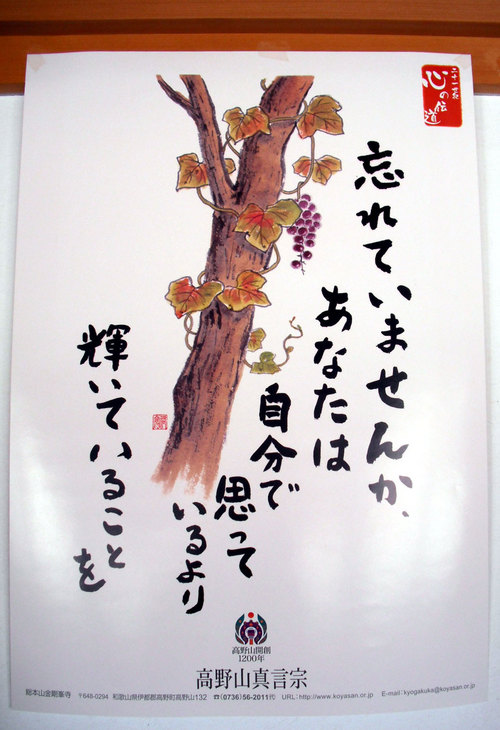 二十一世紀
心の伝道
忘れていませんか、
あなたは
自分で
思って
いるより
輝いていること
を
高野山開創
1200年
高野山真言宗
総本山金剛峯寺 〒648-0294 和歌山県伊都郡高野町高野山132 ☎(0736)56-2011㈹ URL:http://www.koyasan.or.jp E-mail:kyogakuka@koyasan.or.jp